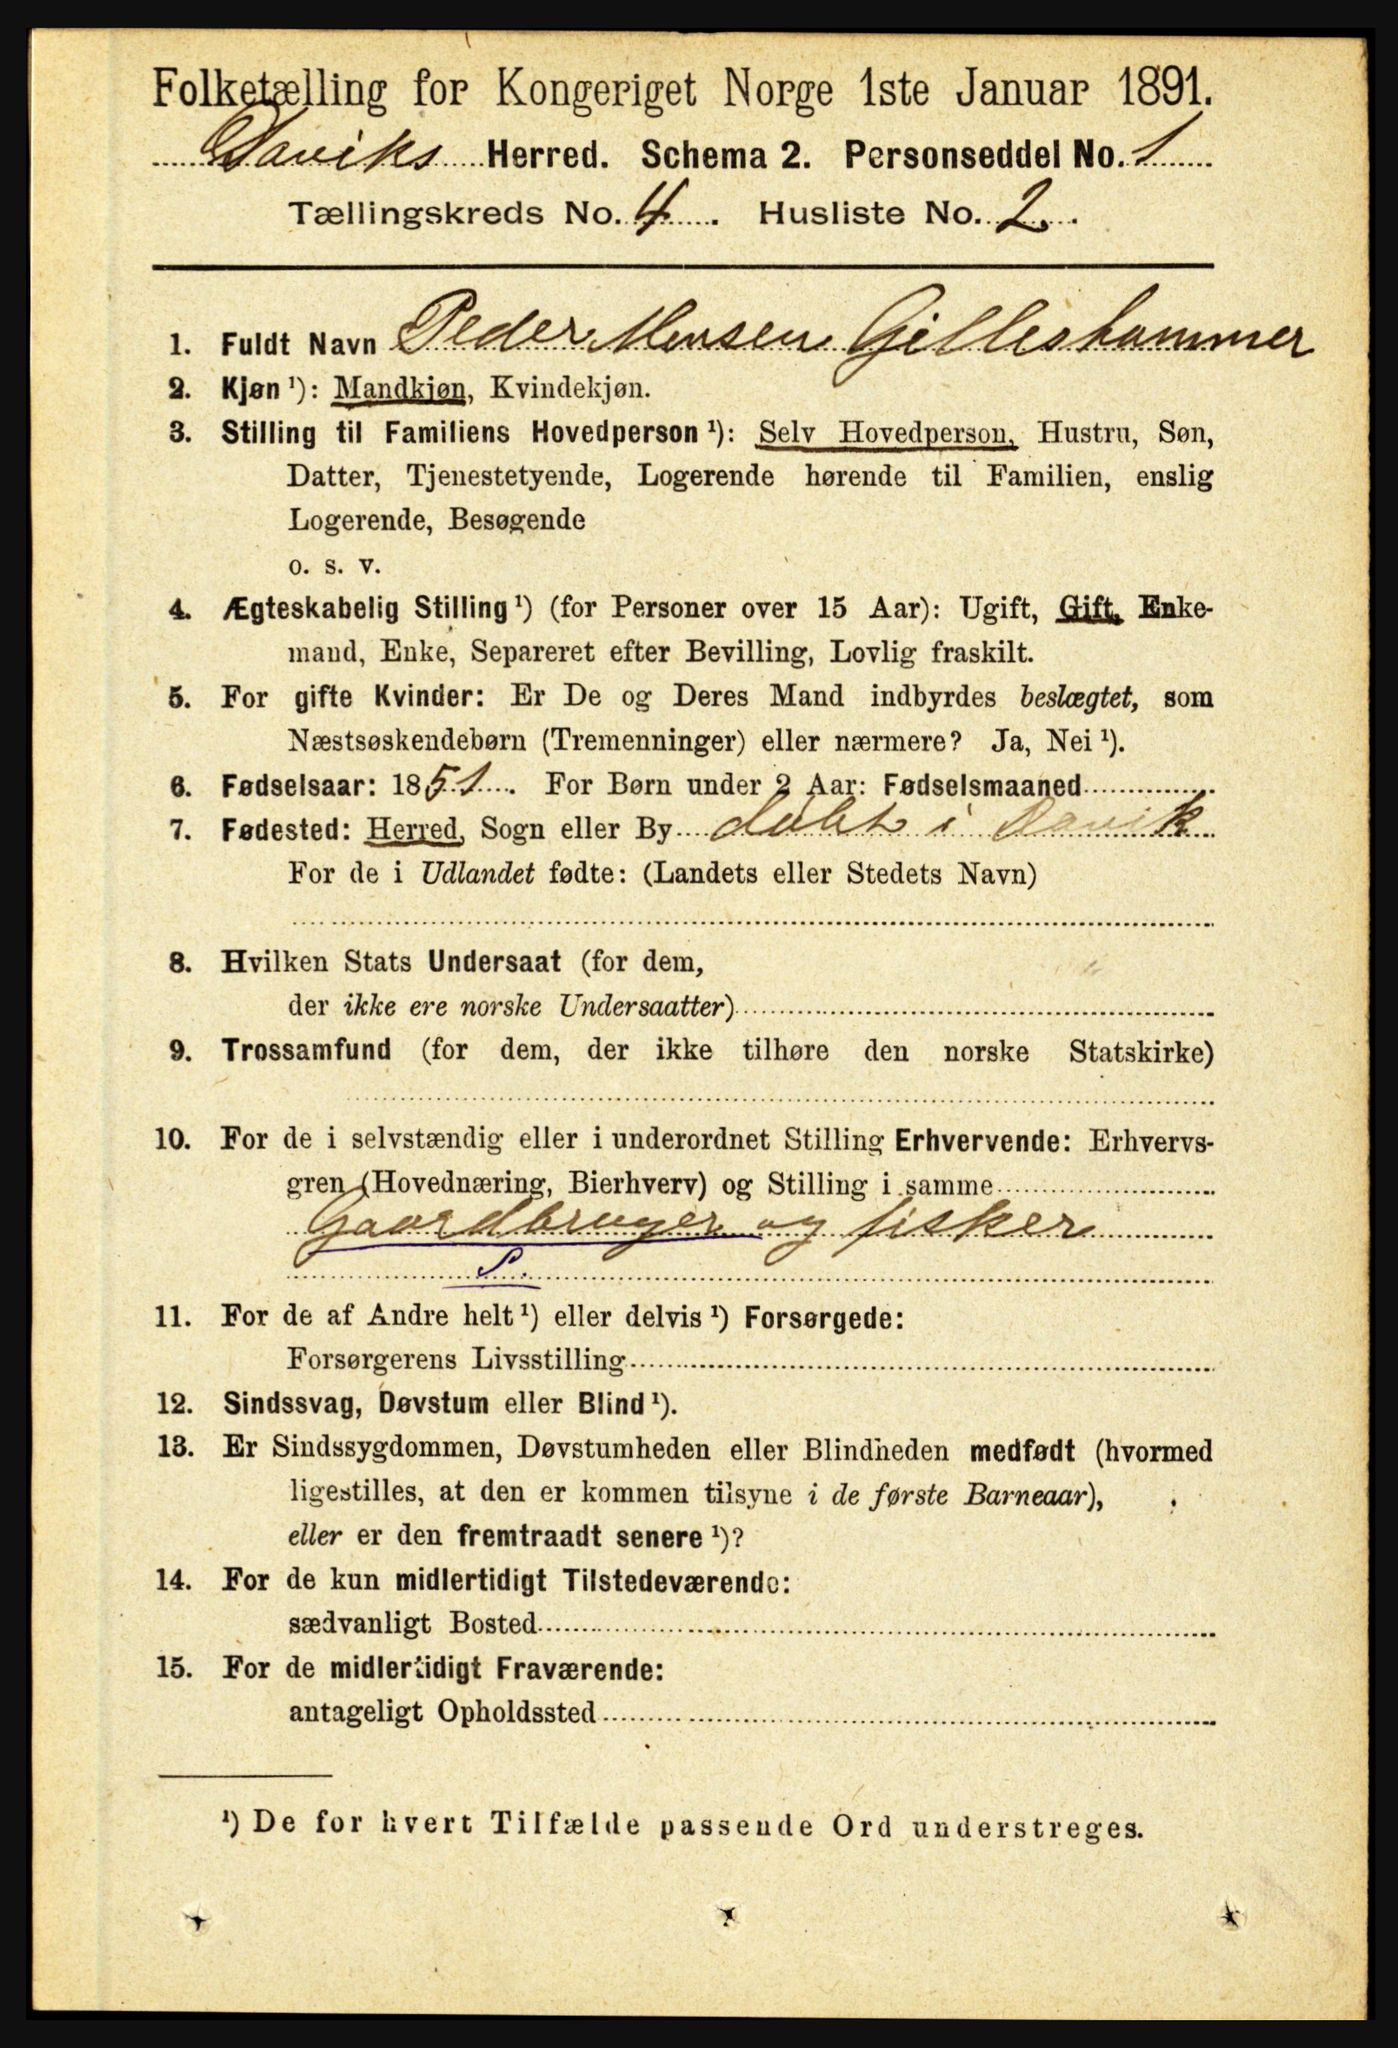 Folketælling for Kongeriget Norge 1ste Januar 1891.
Daviks Herred. Schema 2. Personseddel No. 1
Tællingskreds No. 4. Husliste No. 2.
1. Fuldt Navn Peder Monsen Gilleshammer
2. Kjøn ¹): Mandkjøn, Kvindekjøn.
3. Stilling til Familiens Hovedperson ¹): Selv Hovedperson, Hustru, Søn,
Datter, Tjenestetyende, Logerende hørende til Familien, enslig
Logerende, Besøgende
o. s. v.
4. Ægteskabelig Stilling ¹) (for Personer over 15 Aar): Ugift, Gift, Enke-
mand, Enke, Separeret efter Bevilling, Lovlig fraskilt.
5. For gifte Kvinder: Er De og Deres Mand indbyrdes beslægtet, som
Næstsøskendebørn (Tremenninger) eller nærmere? Ja, Nei ¹).
6. Fødselsaar: 1851. For Børn under 2 Aar: Fødselsmaaned
7. Fødested: Herred, Sogn eller By døbt i Davik
For de i Udlandet fødte: (Landets eller Stedets Navn)
8. Hvilken Stats Undersaat (for dem,
der ikke ere norske Undersaatter)
9. Trossamfund (for dem, der ikke tilhøre den norske Statskirke)
10. For de i selvstændig eller i underordnet Stilling Erhvervende: Erhvervs-
gren (Hovednæring, Bierhverv) og Stilling i samme
Gaardbruger og fisker
S.
11. For de af Andre helt ¹) eller delvis ¹) Forsørgede:
Forsørgerens Livsstilling
12. Sindssvag, Døvstum eller Blind ¹).
13. Er Sindssygdommen, Døvstumheden eller Blindheden medfødt (hvormed
ligestilles, at den er kommen tilsyne i de første Barneaar),
eller er den fremtraadt senere ¹)?
14. For de kun midlertidigt Tilstedeværende:
sædvanligt Bosted
15. For de midlertidigt Fraværende:
antageligt Opholdssted
¹) De for hvert Tilfælde passende Ord understreges.